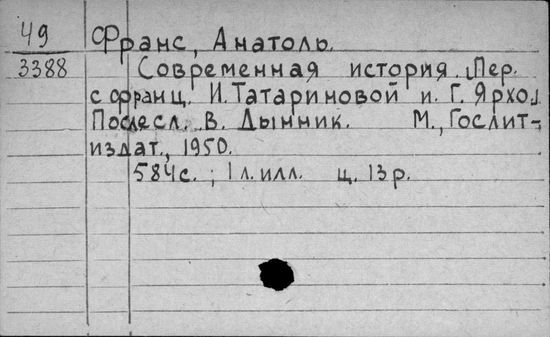 49 Франс, Анатоль.
3388 Современная история. Пер.
с франц. И. Татариновой и Г. Ярхо.
Послесл. В. Дынник. М., Гослит-
издат., 1950.
584с.; 1 л. илл. ц. 13 р.